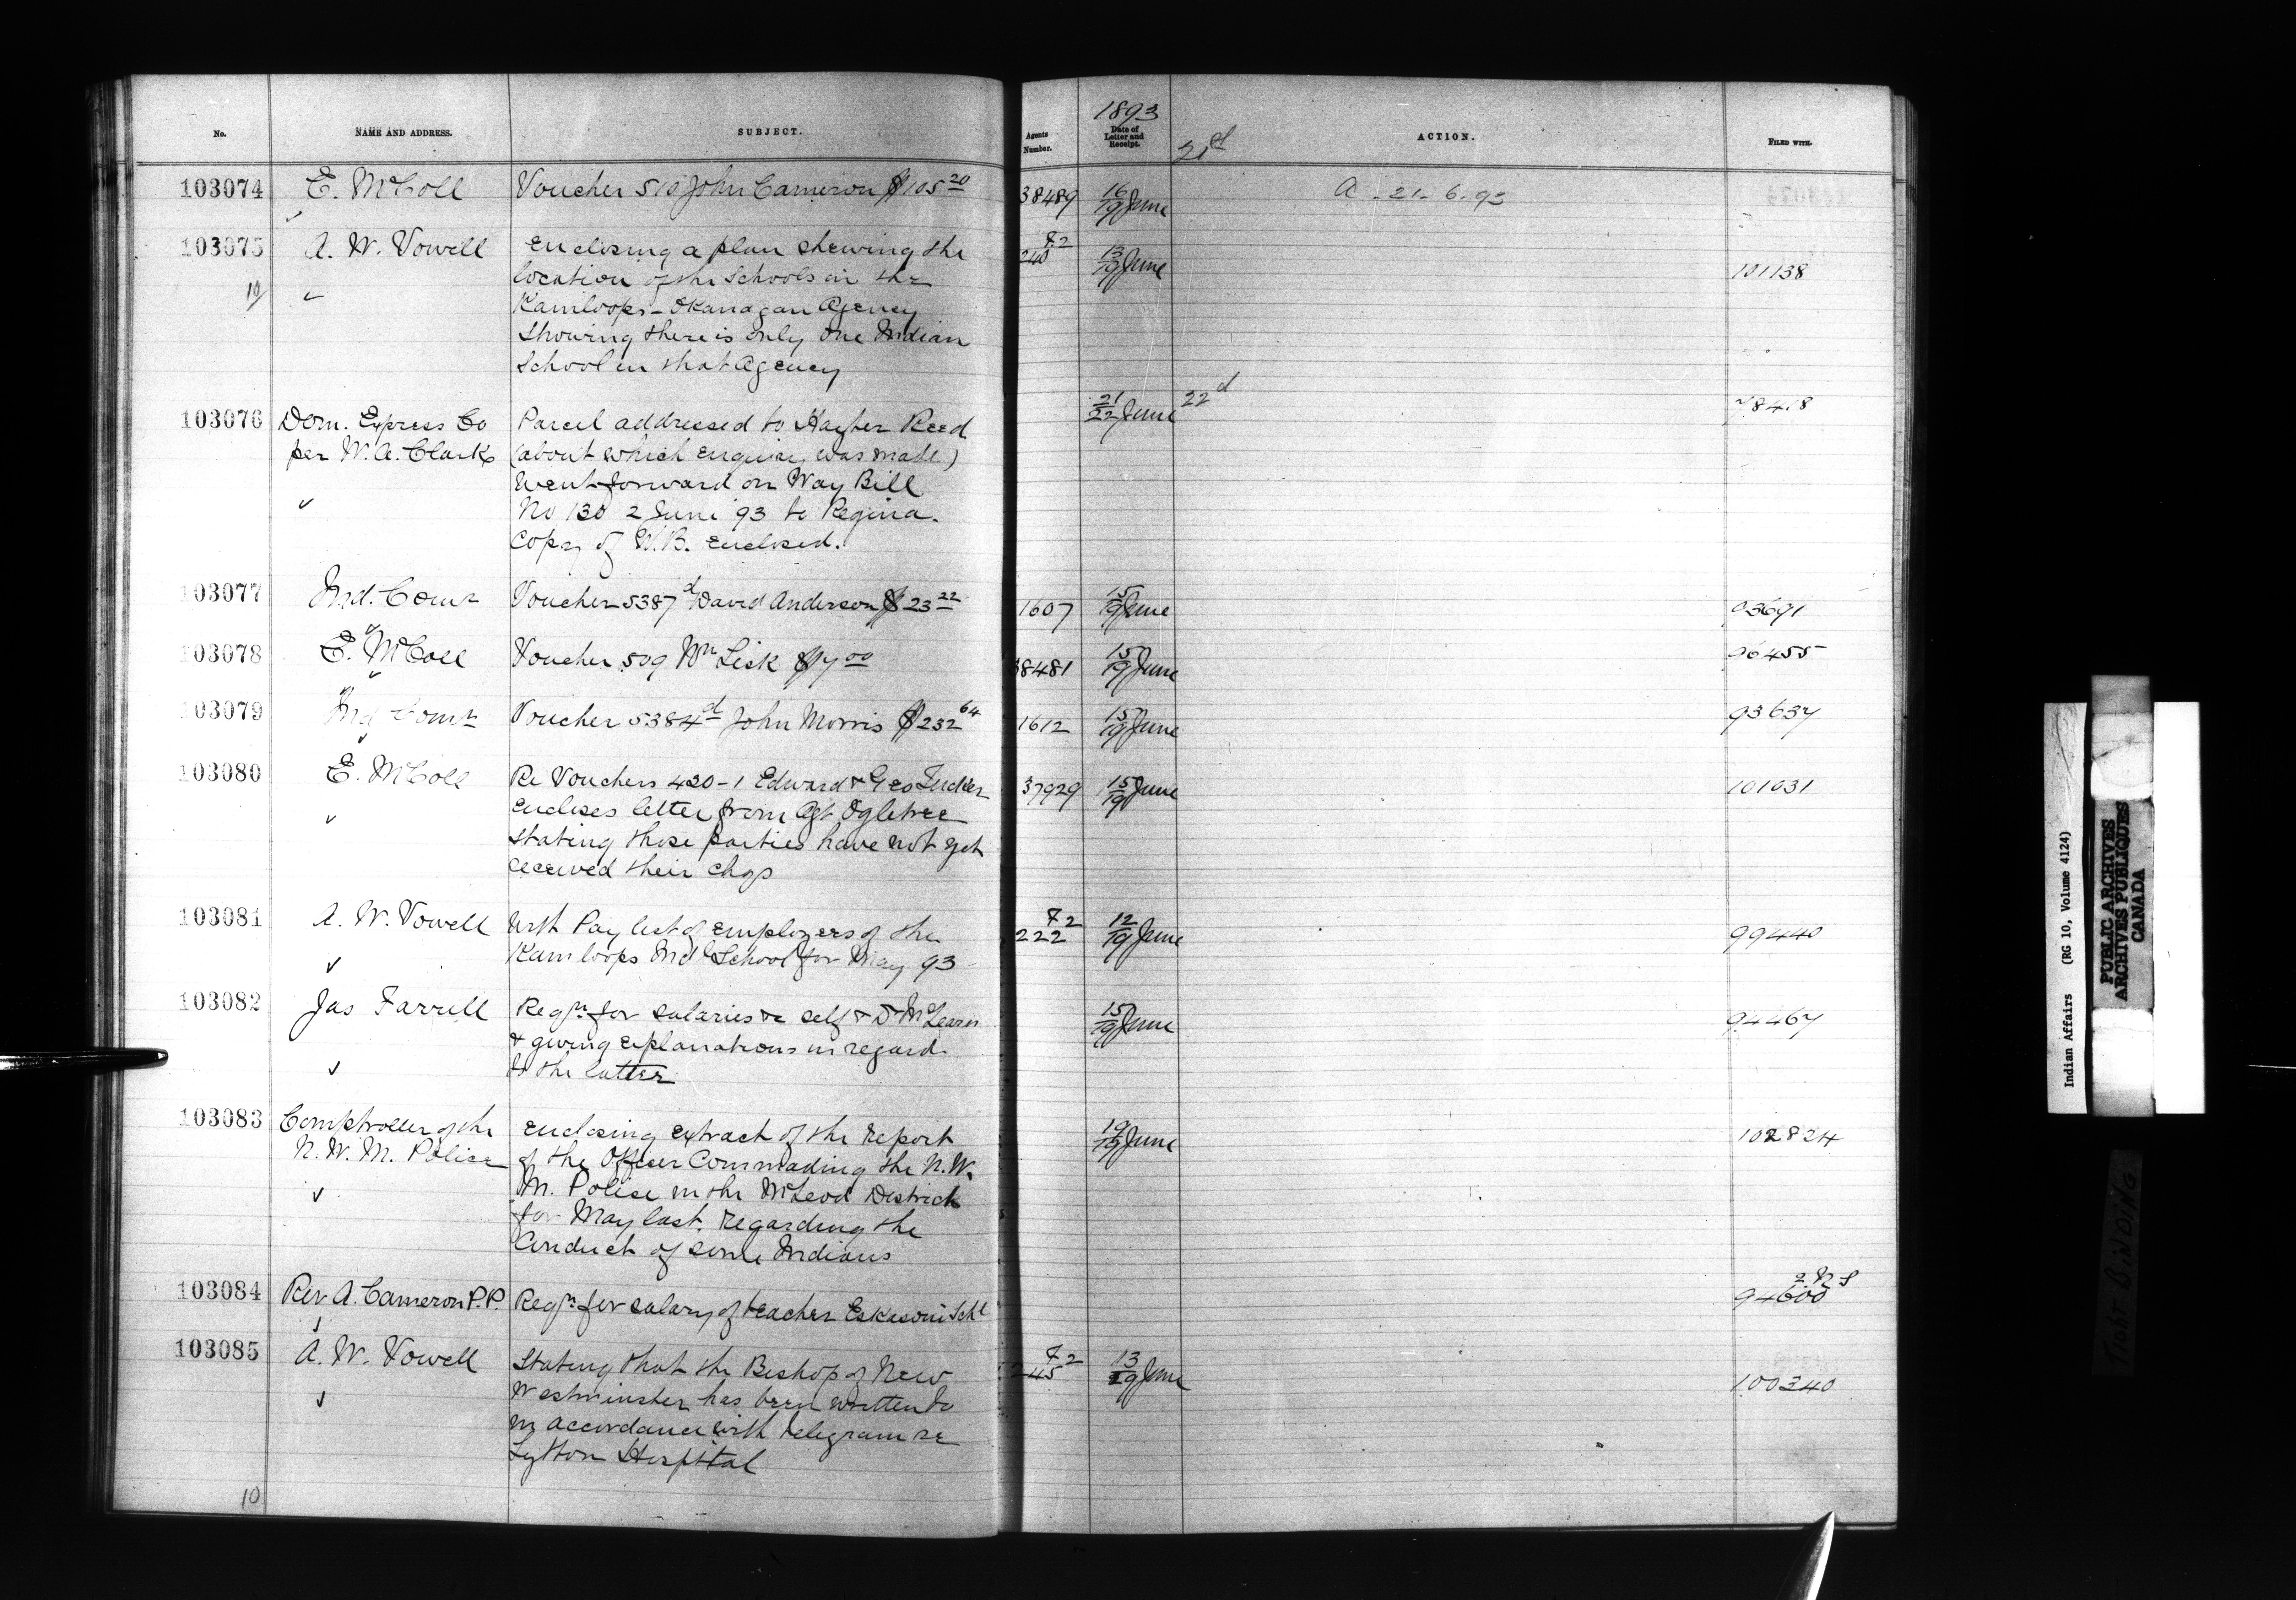 No. NAME AND ADDRESS. SUBJECT. Agents Number. 1893 Date of Letter and Receipt. ACTION. FILED WITH.
21st
103074 E. McColl Voucher 510 John Cameron $105 20 38489 16/19 June A - 21 - 6 - 93
103075 A. W. Vowell Enclosing a plan shewing the 240 13/19 June 101138
location of the Schools in the
10
Kamloops - Okanagan Agency
Showing there is only one Indian
School in that Agency
103076 Dom. Express Co Parcel addressed to Hayter Reed 21/22 June 22d 78418
per W. A. Clark (about which enquiry was made)
Went forward on Way Bill
No 130 2 June 93 to Regina.
Copy of W. B. enclosed.
103077 Ind. Comr Voucher 5387 d David Anderson $23 22 1607 15/19 June 93691
103078 E. McColl Voucher 509 Wm Lisk $7 00 38481 15/19 June 96455
103079 Ind Comr Voucher 5384 d John Morris $232 64 1612 15/19 June 93637
103080 E. McColl Re Vouchers 420-1 Edward & Geo Tucker 37929 15/19 June 101031
Encloses letter from Agt Ogletree
stating those parties have not yet
received their chqs
103081 A. W. Vowell With Pay list of employees of the 222 12/19 June 99440
Kamloops Indl School for May 93
103082 Jas Farrell Reqn for salaries re self & D McLearn 15/19 June 94467
& giving explanations in regard
to the latter
103083 Comptroller of the Enclosing extract of the report 19/19 June 102824
N. W. M. Police of the Officer Commading the N. W.
M. Police in the McLeod District
for May last, regarding the
Conduct of some Indians
103084 Rev A. Cameron P.P. Reqn for salary of teacher Eskasoni Schl 94600
103085 A. W. Vowell Stating that the Bishop of New 245 13/19 June 100340
Westminster has been written to
in accordance with telegram re
Lytton Hospital
10
Indian Affairs (RG 10, Volume 4124)
PUBLIC ARCHIVES
ARCHIVES PUBLIQUES
CANADA
TIGHT BINDING